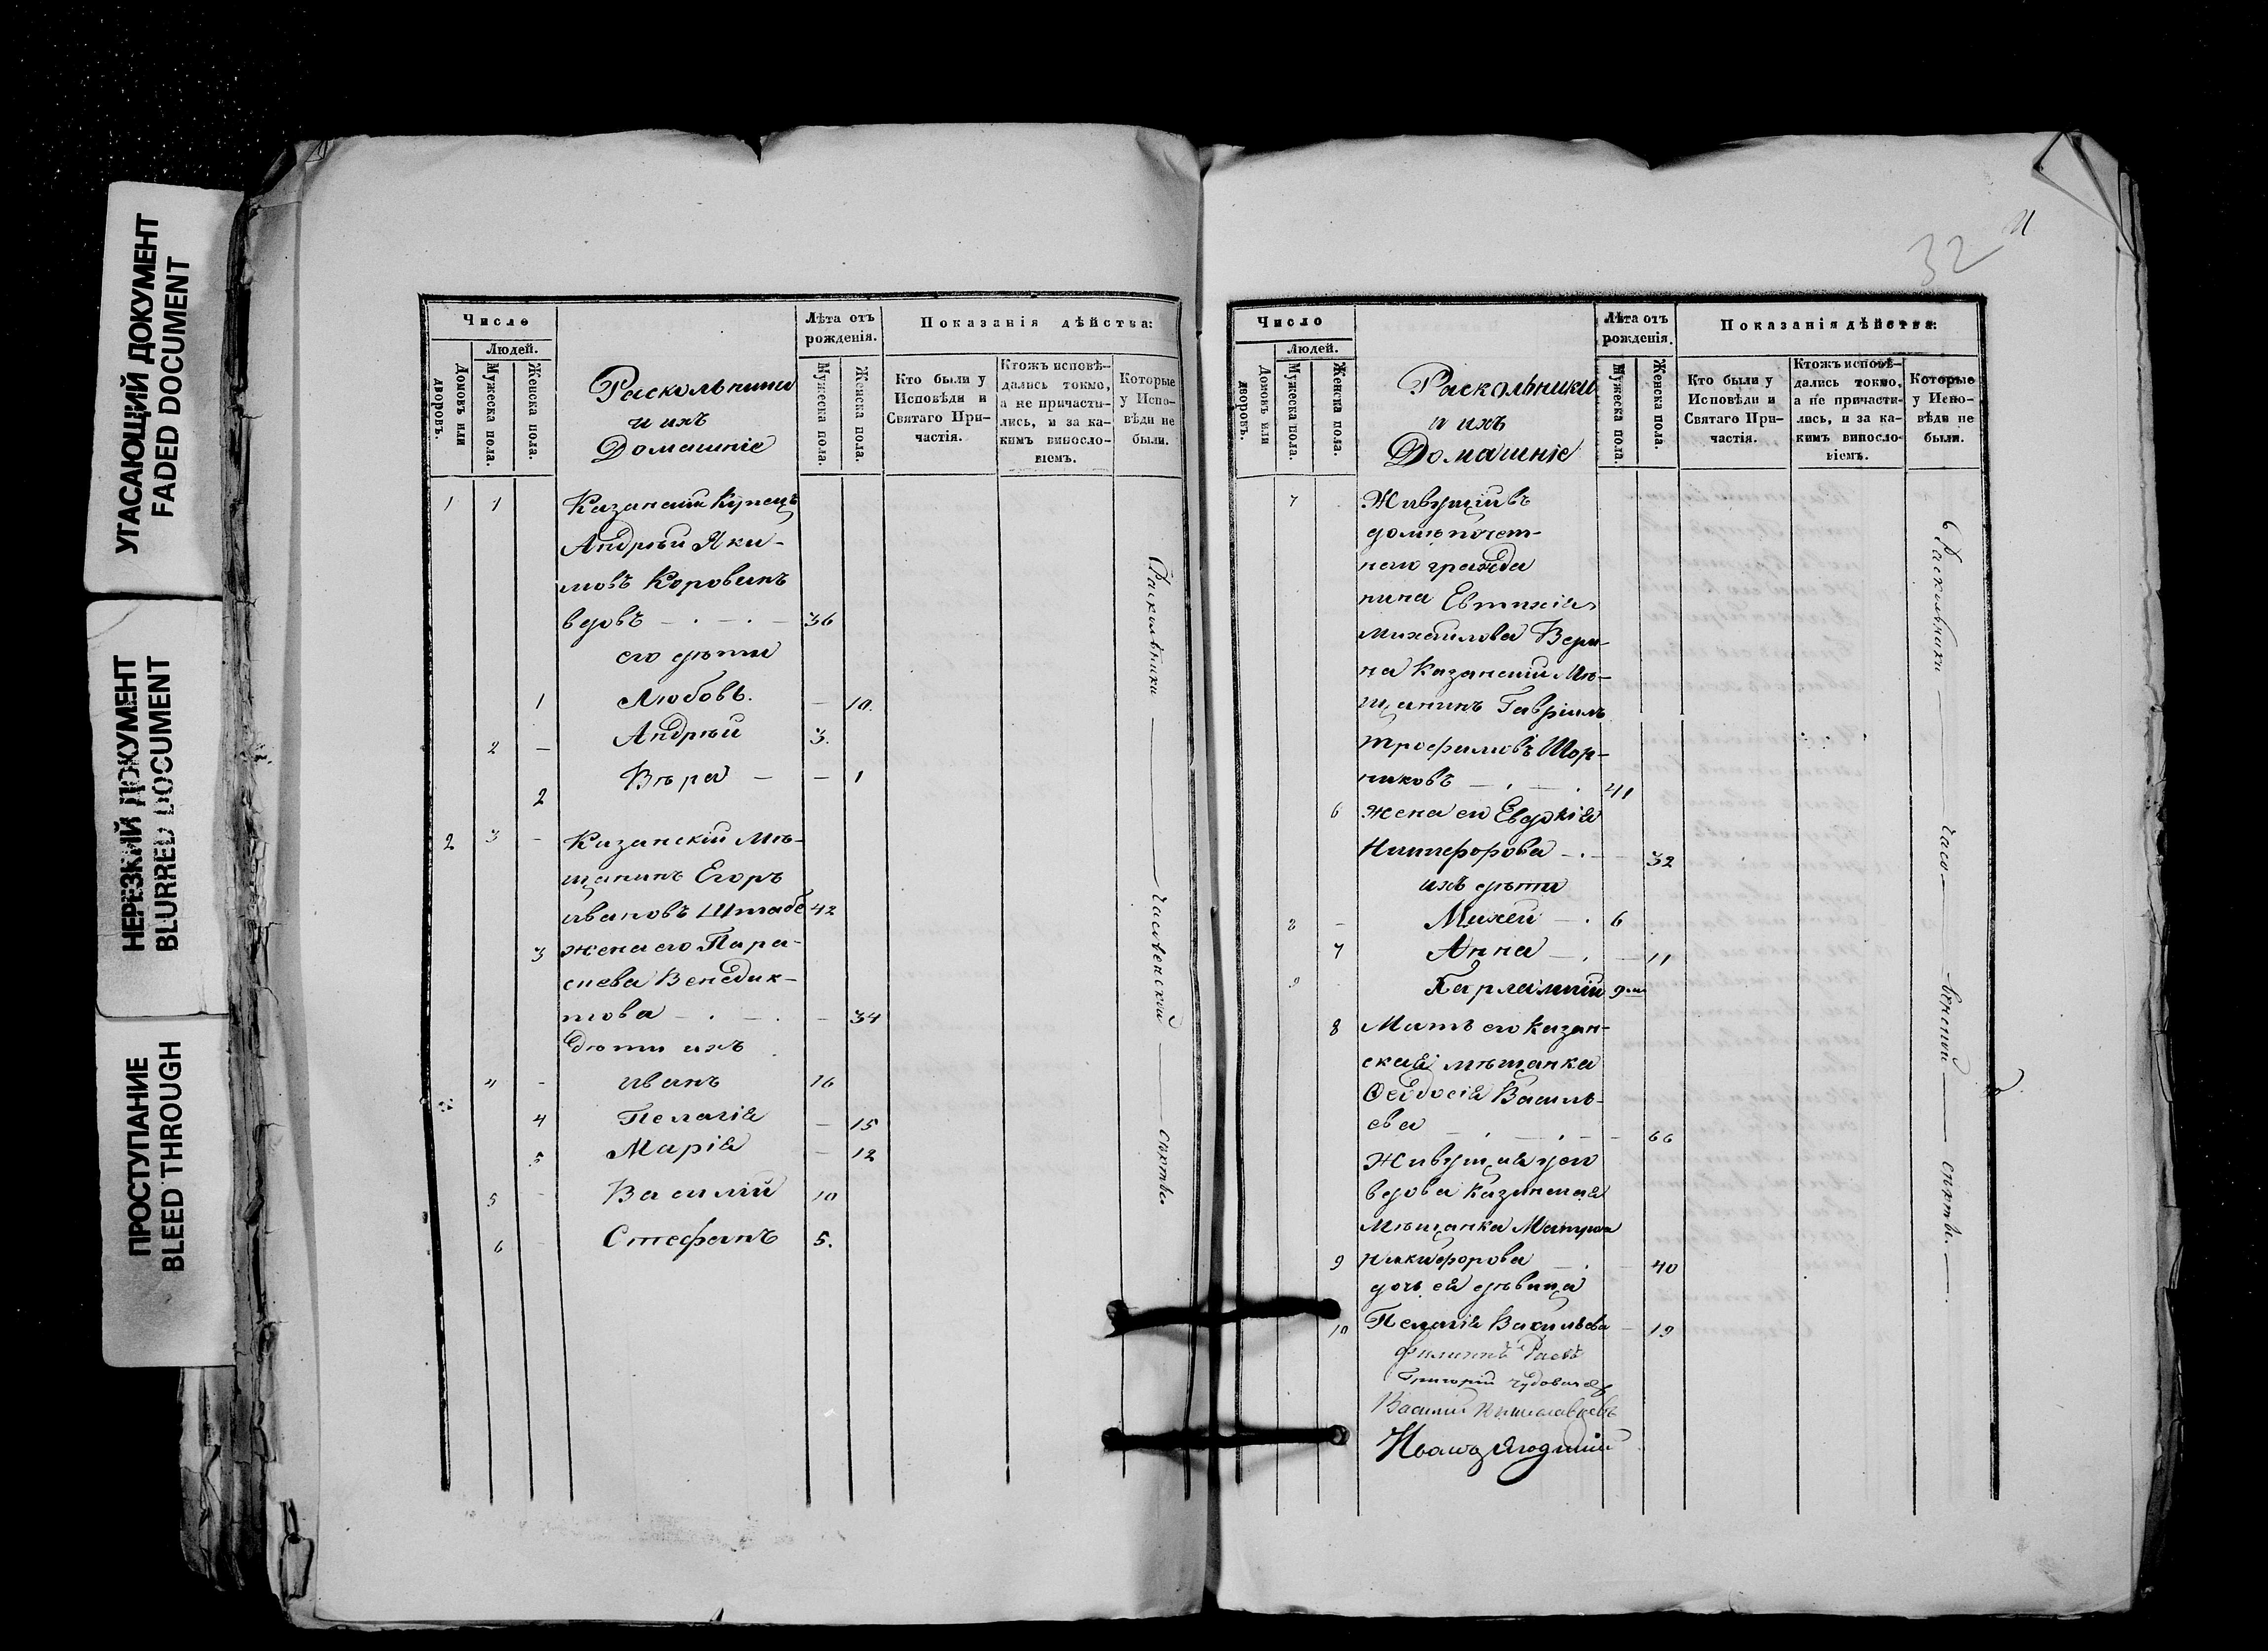 УГАСАЮЩИЙ ДОКУМЕНТ
FADED DOCUMENT
НЕРЕЗКИЙ ДОКУМЕНТ
BLURRED DOCUMENT
ПРОСТУПАНИЕ
BLEED THROUGH
Число
Людей.
Домовъ или дворовъ.
Мужеска пола.
Женска пола.
Раскольники
и ихъ
Домашніе
Лѣта отъ рожденія.
Мужеска пола.
Женска пола.
Показанія дѣйства:
Кто были у Исповѣди и Святаго Причастія.
Ктожъ исповѣдались токмо, а не причастились, и за какимъ винословіемъ.
Которые у Исповѣди не были.
1 1 Казанскій Купецъ
Андрѣй Яки-
мовъ Коровинъ
вдовъ 36
его дѣти
1 Любовь. – 10.
2 – Андрѣй 3.
2 Вѣра – – 1
2 3 – Казанскій Мѣ-
щанинъ Егоръ
Ивановъ 42
3 жена его Пара-
скева Венедик-
това – 34
Дѣти ихъ
4 - Иванъ 16
4 Пелагія – 15
5 Марія – 12
5 - Василій 10
6 - Стефанъ 5.
Раскольники — Часовенской — секты
32
Число
Людей.
Домовъ или дворовъ.
Мужеска пола.
Женска пола.
Раскольники
и ихъ
Домашніе
Лѣта отъ рожденія.
Мужеска пола.
Женска пола.
Показанія дѣйства:
Кто были у Исповѣди и Святаго Причастія.
Ктожъ исповѣдались токмо, а не причастились, и за какимъ винословіемъ.
Которые у Исповѣди не были.
7 Живущій въ
домѣ почет-
наго гражда
нина Евтихія
Михайлова
Казанскій Мѣ-
щанинъ Гавріилъ
Трофимовъ Шор-
никовъ 41
6 жена его Евдокія
Никифорова 32
ихъ дѣти
8 – Михей 6
7 Анна – 11
9 9
8 Мать его Казан-
ская мѣщанка
Ѳеодосія Василь-
ева – 66
Живущая у него
вдова Казанская
Мѣщанка Матрона
9 Никифорова – 40
дочь ея дѣвица
10 Пелагія Васильева – 19
Филиппъ
Григорій
Василій
Иванъ Ягодинскій
Раскольники — часо — венской — секты. —